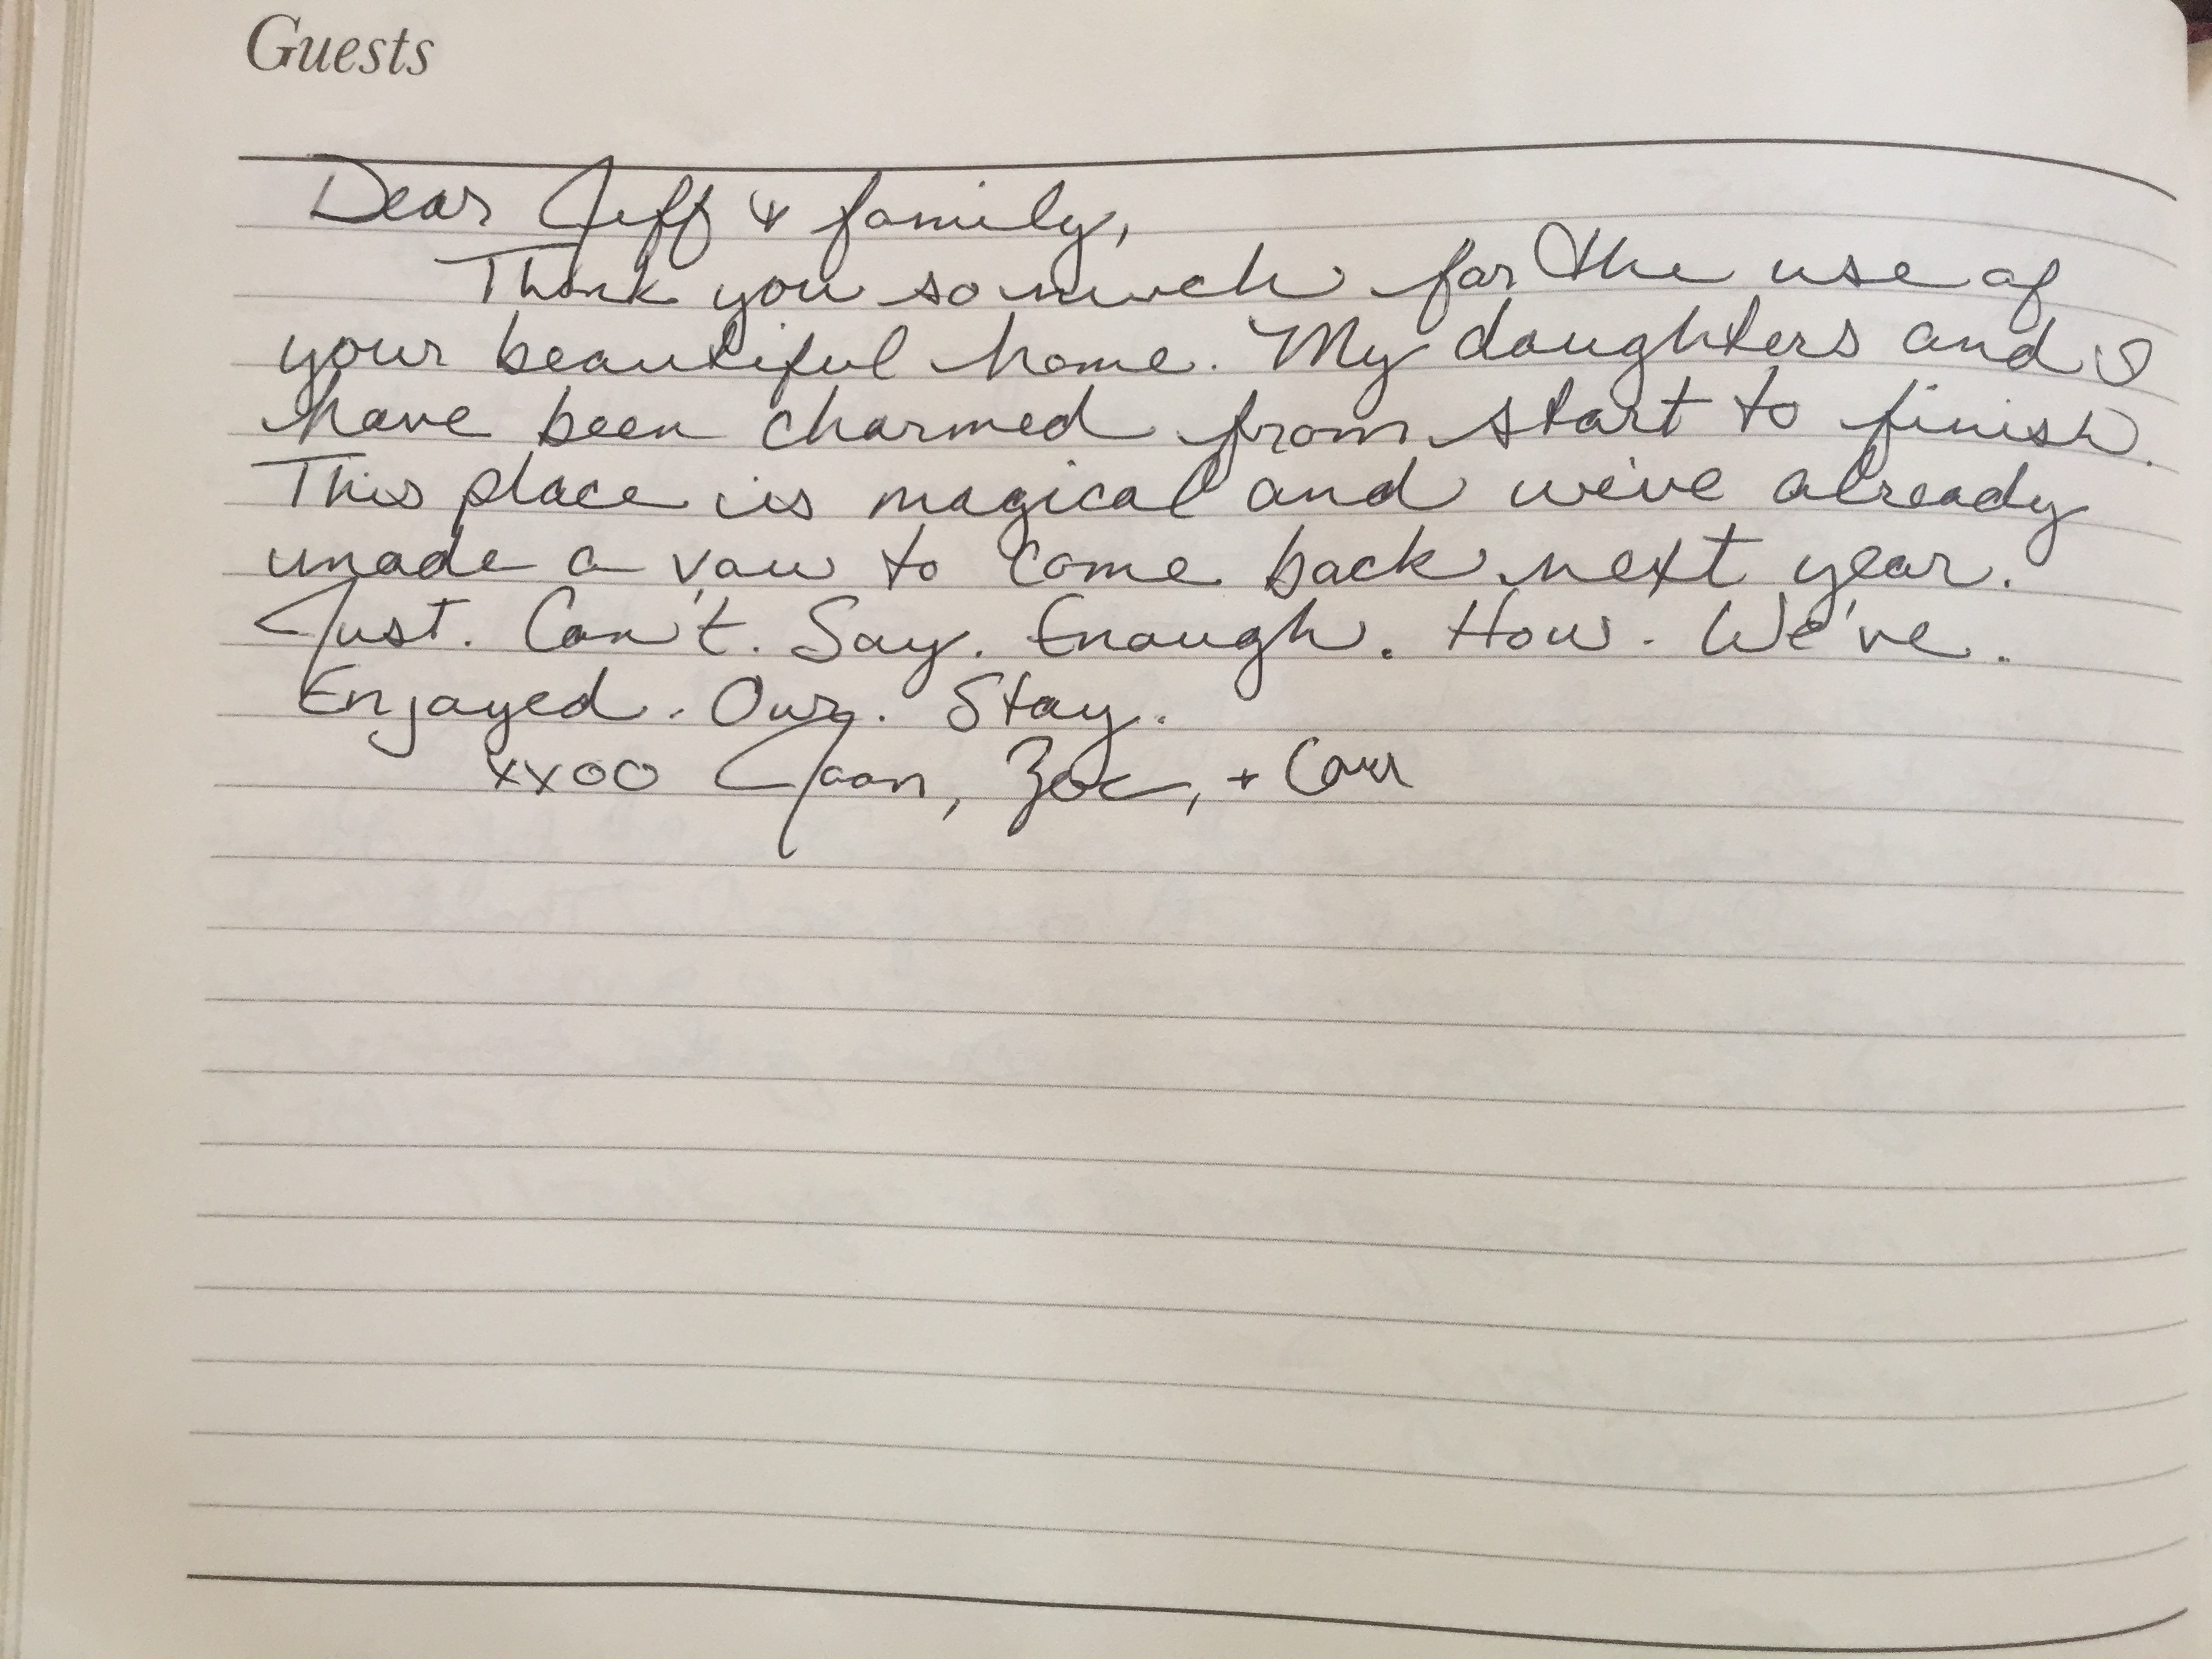 Guests
Dear Jeff & family,
Thank you so much for the use of
your beautiful home. My daughters and I
have been charmed from start to finish.
This place is magical and we've already
made a vow to come back next year.
Just. Can't. Say. Enough. How. We've.
Enjoyed. Our. Stay.
xxoo Joan, Zoe, +